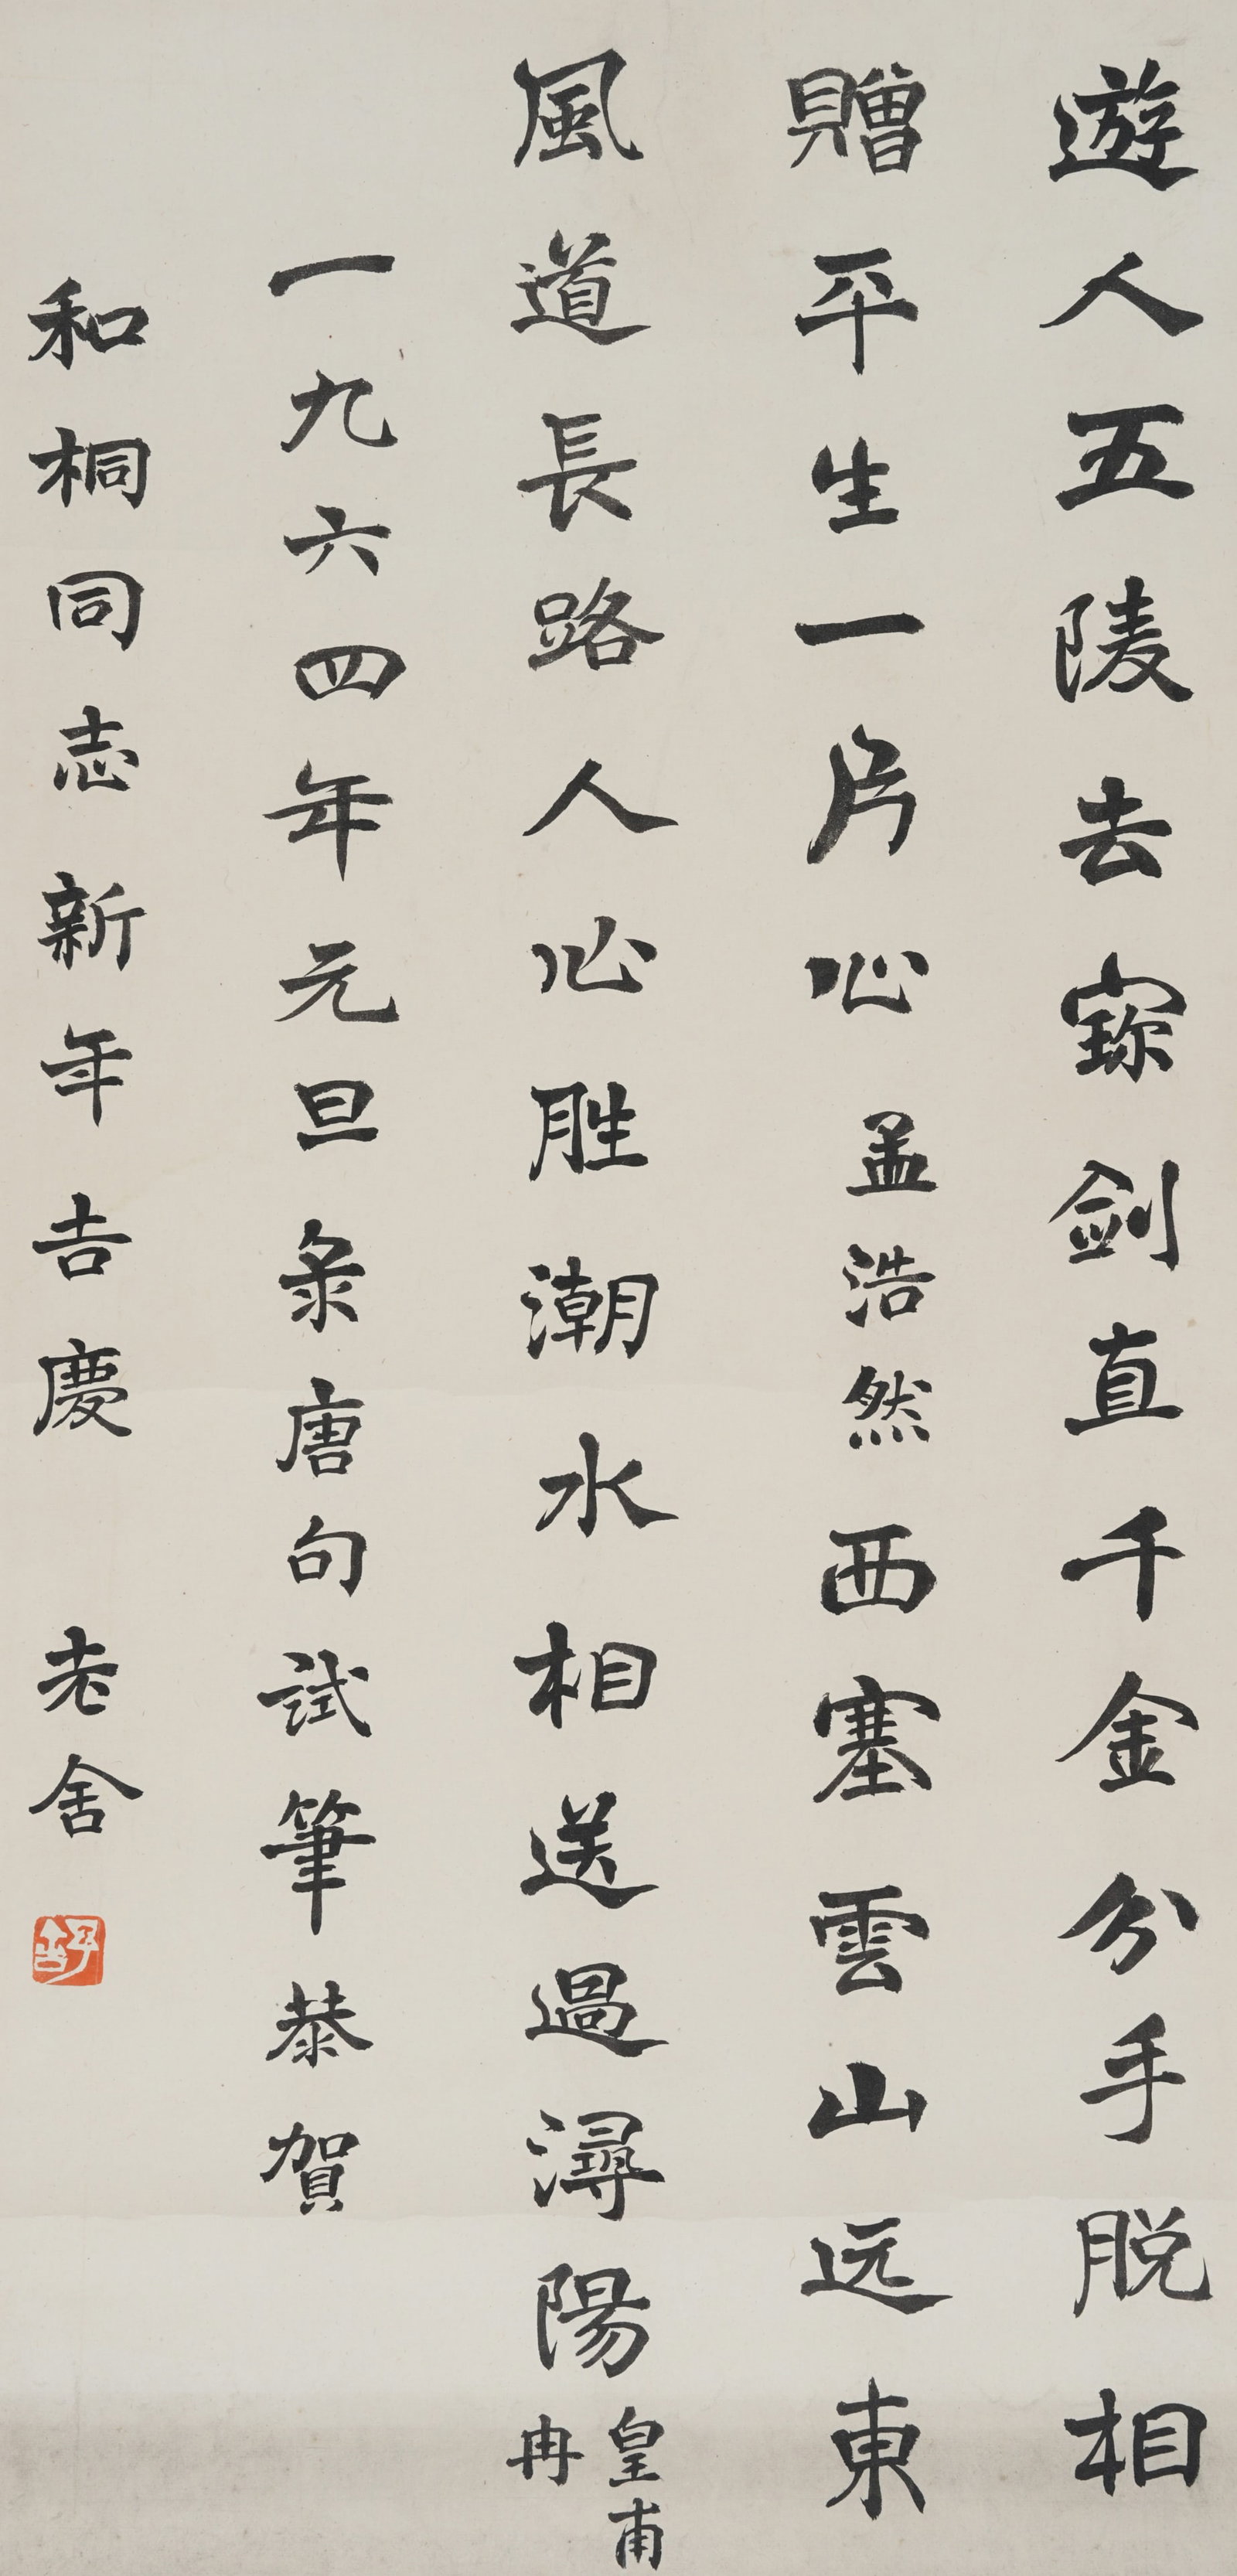 遊人五陵去寳劍直千金分手脱相
贈平生一片心孟浩然西塞雲山远東
風道長路人心胜潮水相送過潯陽皇甫冉
一九六四年元旦录唐句試筆恭賀
和桐同志新年吉慶 老舍
舒舍予